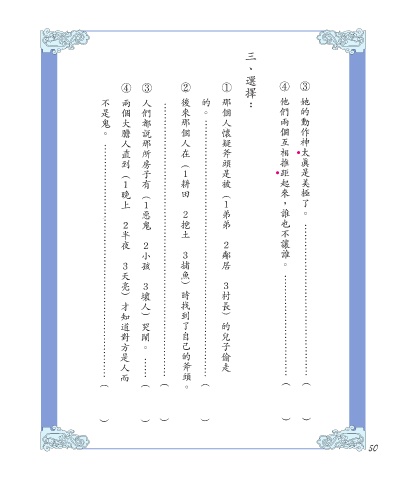 ③ 她的動作神太真是美極了。……………………（　　）
④ 他們兩個互相推距起來，誰也不讓誰。……………（　　）
三、選擇：
① 那個人懷疑斧頭是被（１弟弟　２鄰居　３村長）的兒子偷走
的。……………………………………（　　）
② 後來那個人在（１耕田　２挖土　３捕魚）時找到了自己的斧頭。
……………………………………（　　）
③ 人們都說那所房子有（１惡鬼　２小孩　３壞人）哭鬧。……（　　）
④ 兩個大膽人直到（１晚上　２半夜　３天亮）才知道對方是人而
不是鬼。……………………………………（　　）
50